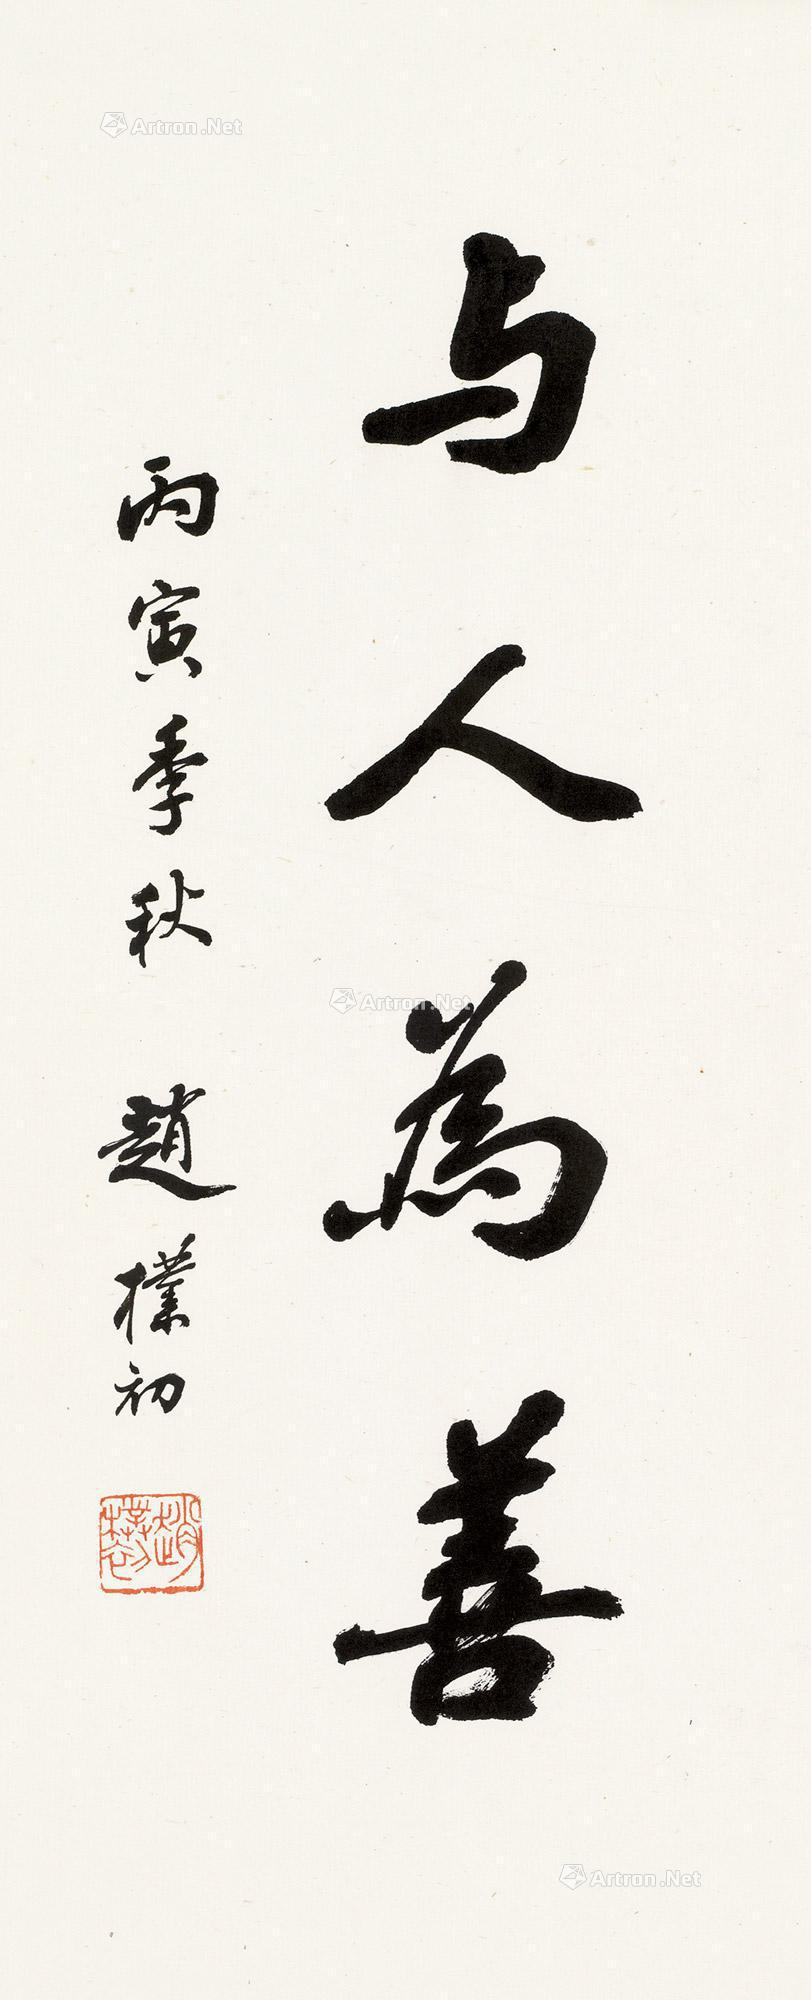 与人為善
丙寅季秋 趙樸初
趙樸初
Artron.Net
Artron.Net
Artron.Net